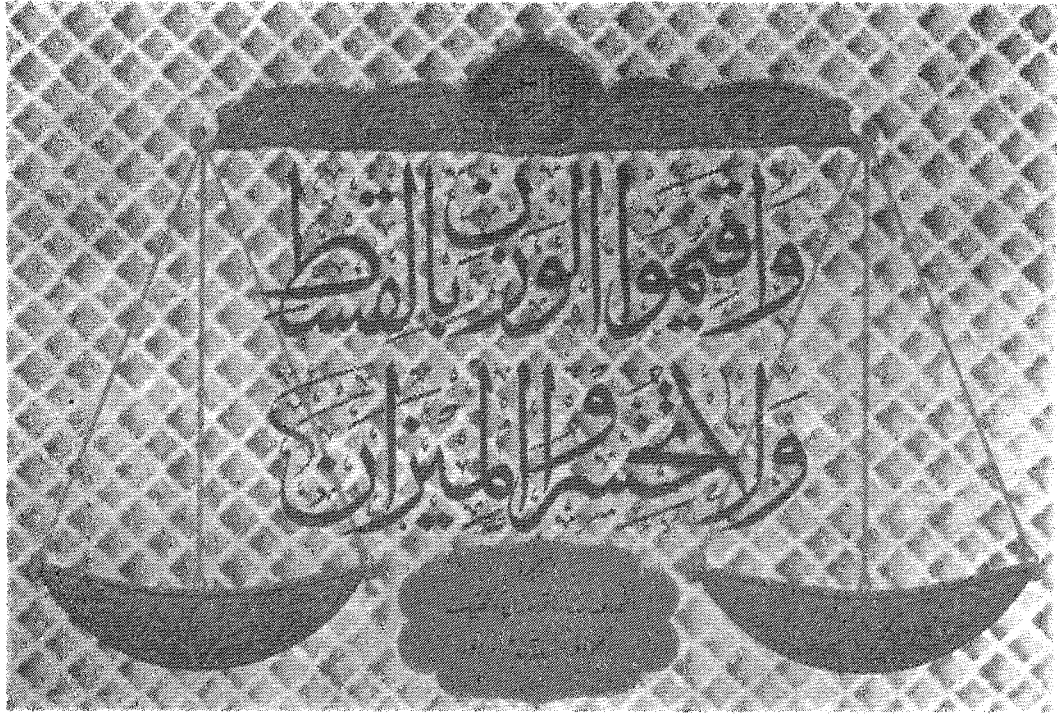 واقيموا الوزن بالقسط
ولا تخسروا الميزان